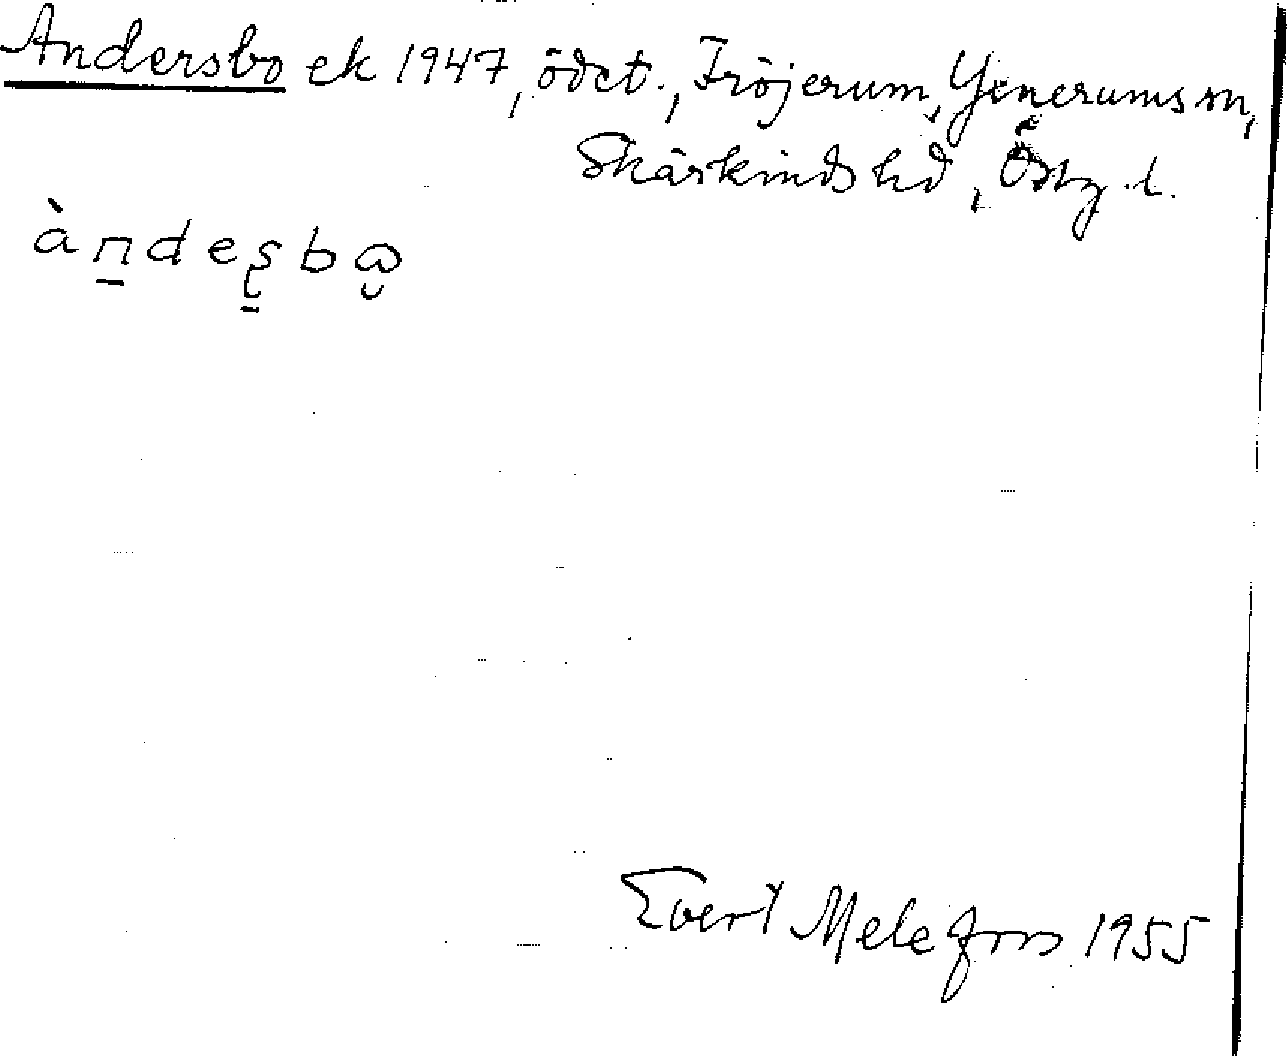 Andersbo ek 1947, ödet., Fröjerum, Yxnerums sn,
Skärkinds hd, Östg. l.
àndesbω
Evert Melefors 1955